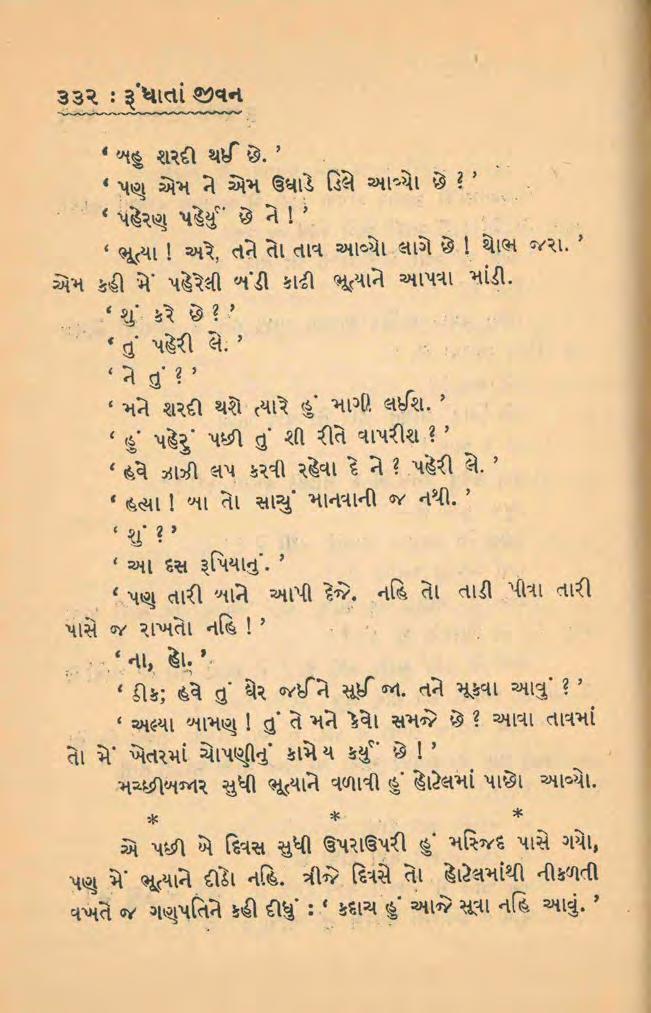 ૩૩૨ : રૂંધાતાં જીવન
‘ બહુ શરદી થઈ છે. ’
‘ પણ એમ ને એમ ઉઘાડે ડિલે આવ્યો છે ? ’
‘ પહેરણ પહેર્યું છે ને ! ’
‘ ભૂત્યા ! અરે, તને તો તાવ આવ્યો લાગે છે ! થોભ જરા. ’
એમ કહી મેં પહેરેલી બંડી કાઢી ભૂત્યાને આપવા માંડી.
‘ શું કરે છે ? ’
‘ તું પહેરી લે. ’
‘ ને તું ? ’
‘ મને શરદી થશે ત્યારે હું માગી લઈશ. ’
‘ હું પહેરું પછી તું શી રીતે વાપરીશ ? ’
‘ હવે ઝાઝી લપ કરવી રહેવા દે ને ? પહેરી લે. ’
‘ હત્યા ! બા તો સાચું માનવાની જ નથી. ’
‘ શું ? ’
‘ આ દસ રૂપિયાનું. ’
‘ પણ તારી બાને આપી દેજે. નહિ તો તાડી પીવા તારી
પાસે જ રાખતો નહિ ! ’
‘ ના, હો. ’
‘ ઠીક; હવે તું ઘેર જઈને સૂઈ જા. તને મૂકવા આવું ? ’
‘ અલ્યા બામણ ! તું તે મને કેવો સમજે છે ? આવા તાવમાં
તો મેં ખેતરમાં ચોપણીનું કામે ય કર્યું છે ! ’
મચ્છીબજાર સુધી ભૂત્યાને વળાવી હું હોટેલમાં પાછો આવ્યો.
* * *
એ પછી બે દિવસ સુધી ઉપરાઉપરી હું મસ્જિદ પાસે ગયો,
પણ મેં ભૂત્યાને દીઠો નહિ. ત્રીજે દિવસે તો હોટેલમાંથી નીકળતી
વખતે જ ગણપતિને કહી દીધું : ‘ કદાચ હું આજે સૂવા નહિ આવું. ’